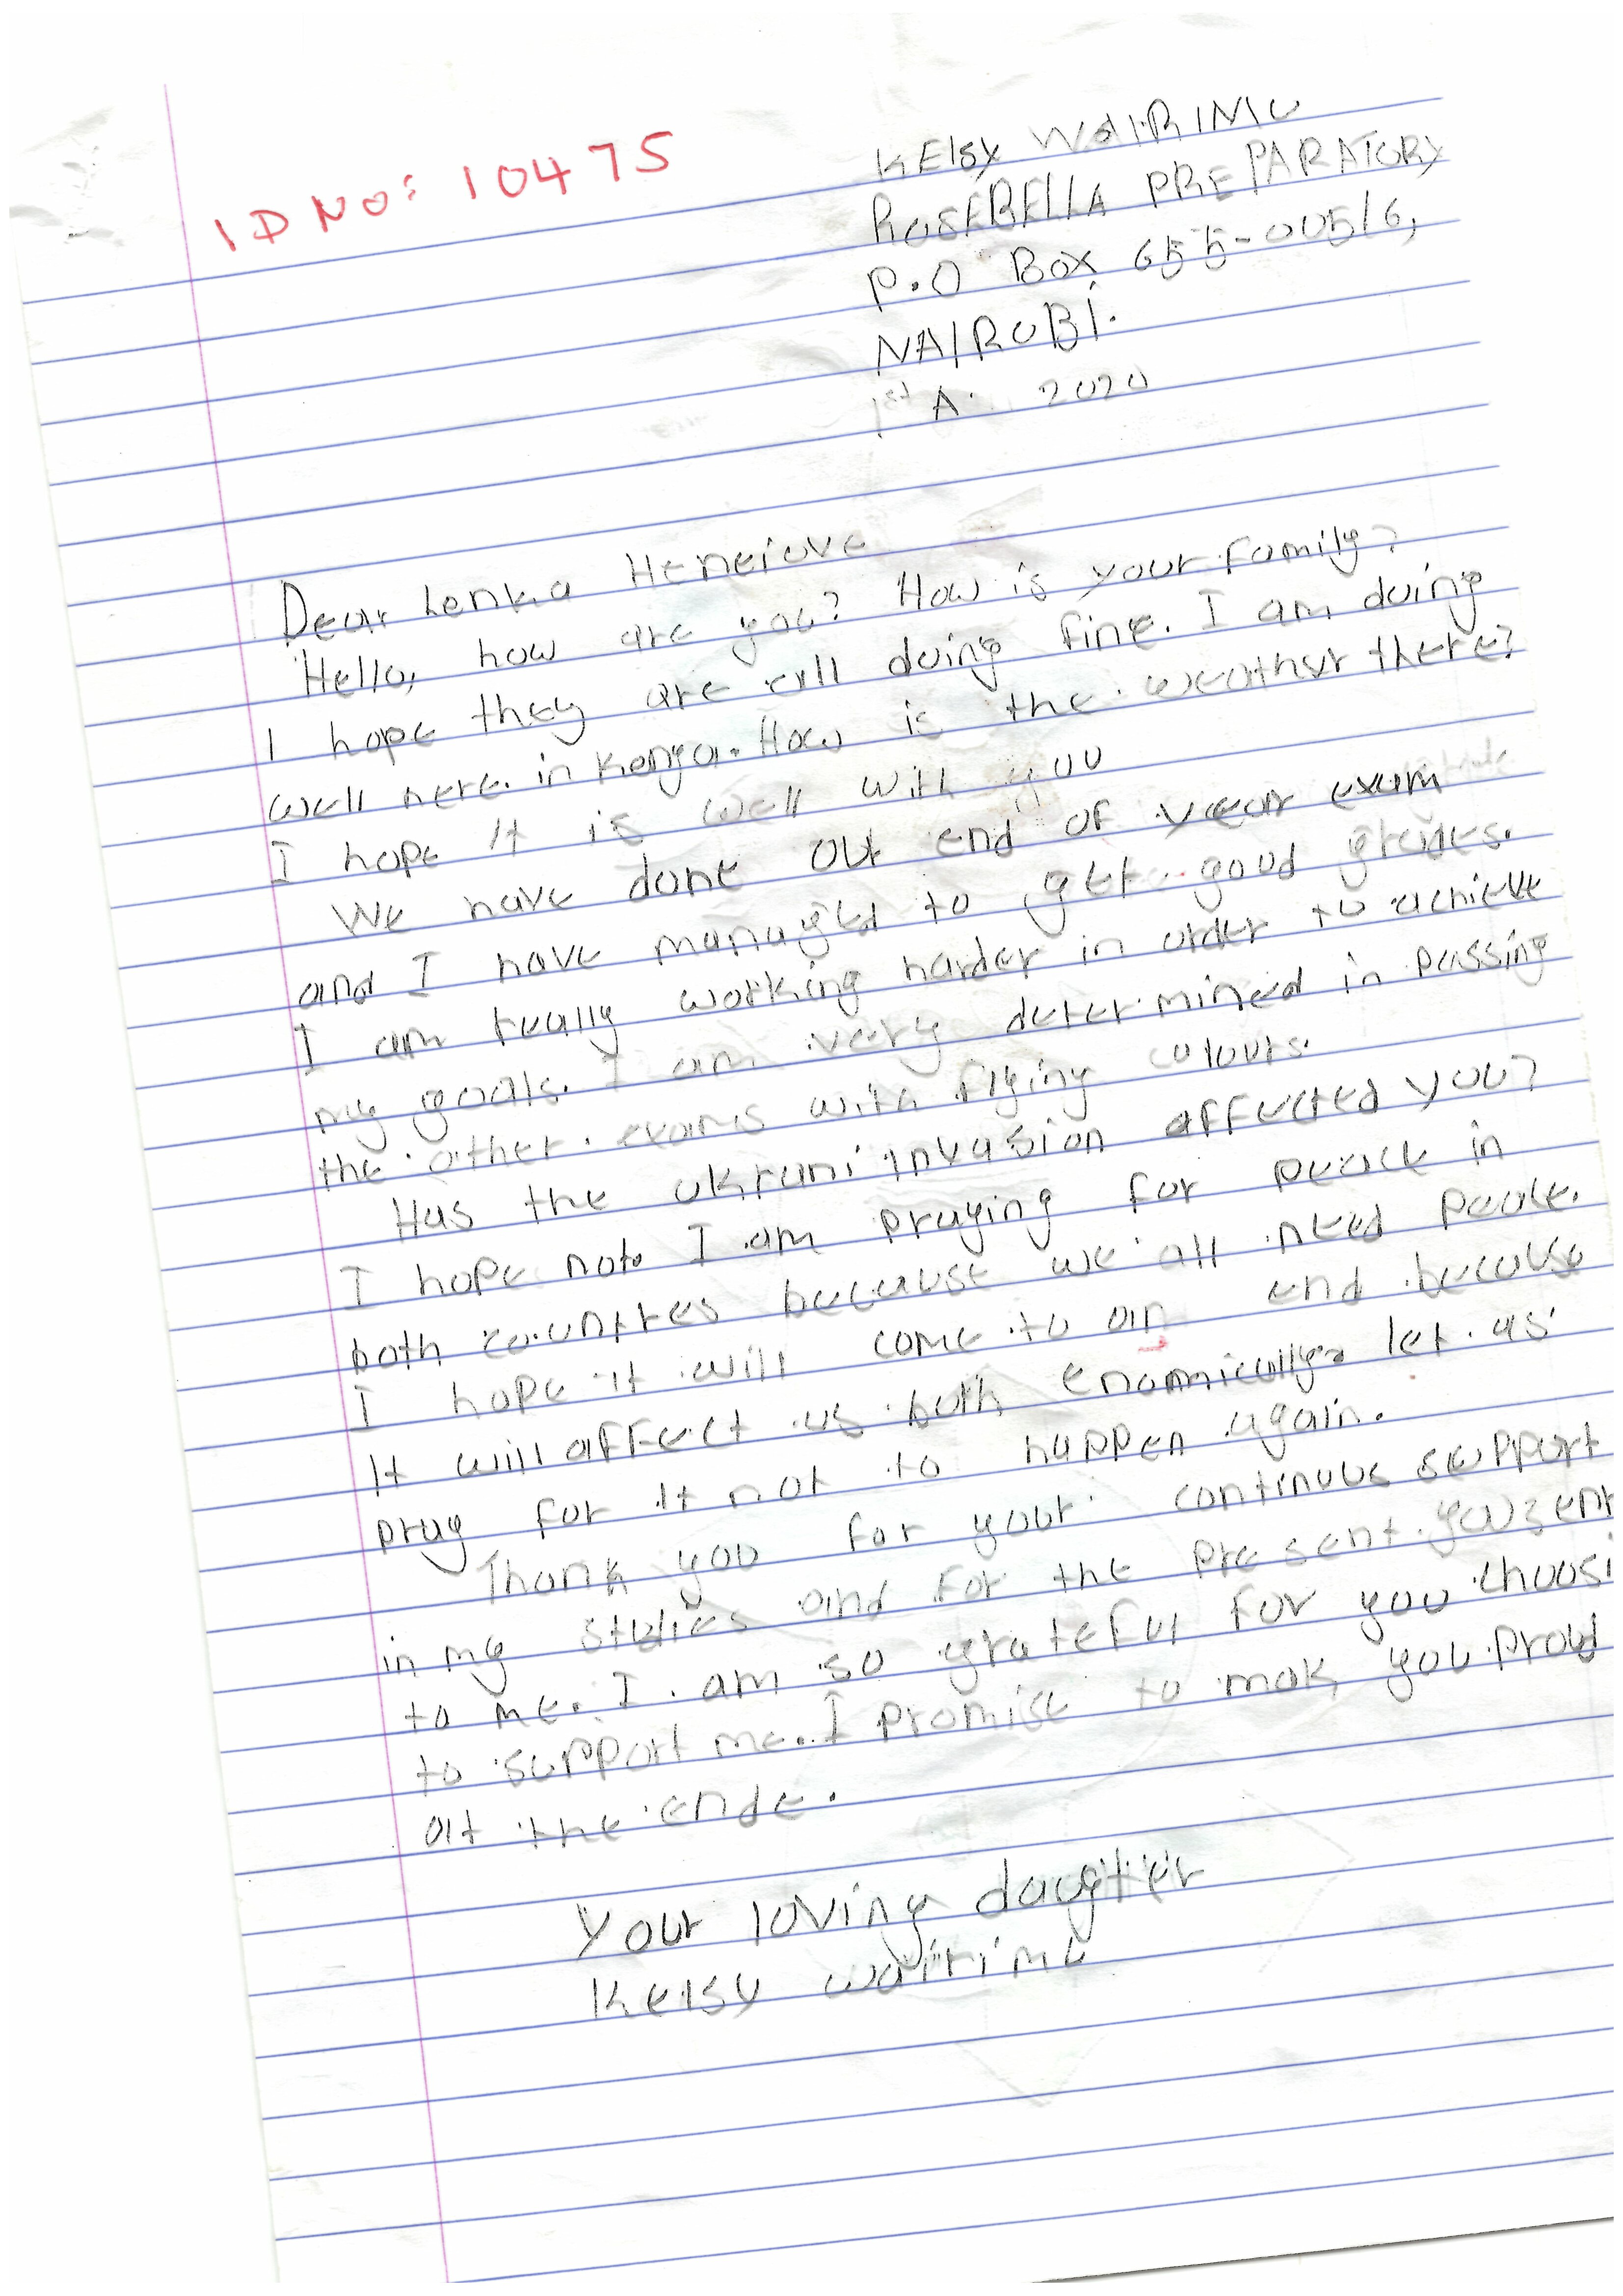 ID NO: 10475
KElsy WAIRIMU
ROSEBELLA PREPARATORY
P.O Box 655-00516,
NAIROBI.
1st A. 2020
Dear Lenka
Hello, how are you? How is your family?
I hope they are all doing fine. I am doing
well here. in Kenya. How is the weather there?
I hope it is well with you
We have done our end of year exam
and I have managed to get good grades.
I am really working harder in order to achieve
my goals. I am very determined in passing
the other exams with flying colours.
Has the ukrani invasion affected you?
I hope not. I am praying for peace in
both countres because we all need peace.
I hope it will come to an end because
It will affect us both enomically let us
pray for it not to happen again.
Thank you for your continuos support
in my studies and for the present you sent
to me. I am so grateful for you choosi
to support me. I promise to mak you proud
at the ende.
Your loving daugter
Kelsy wairimu